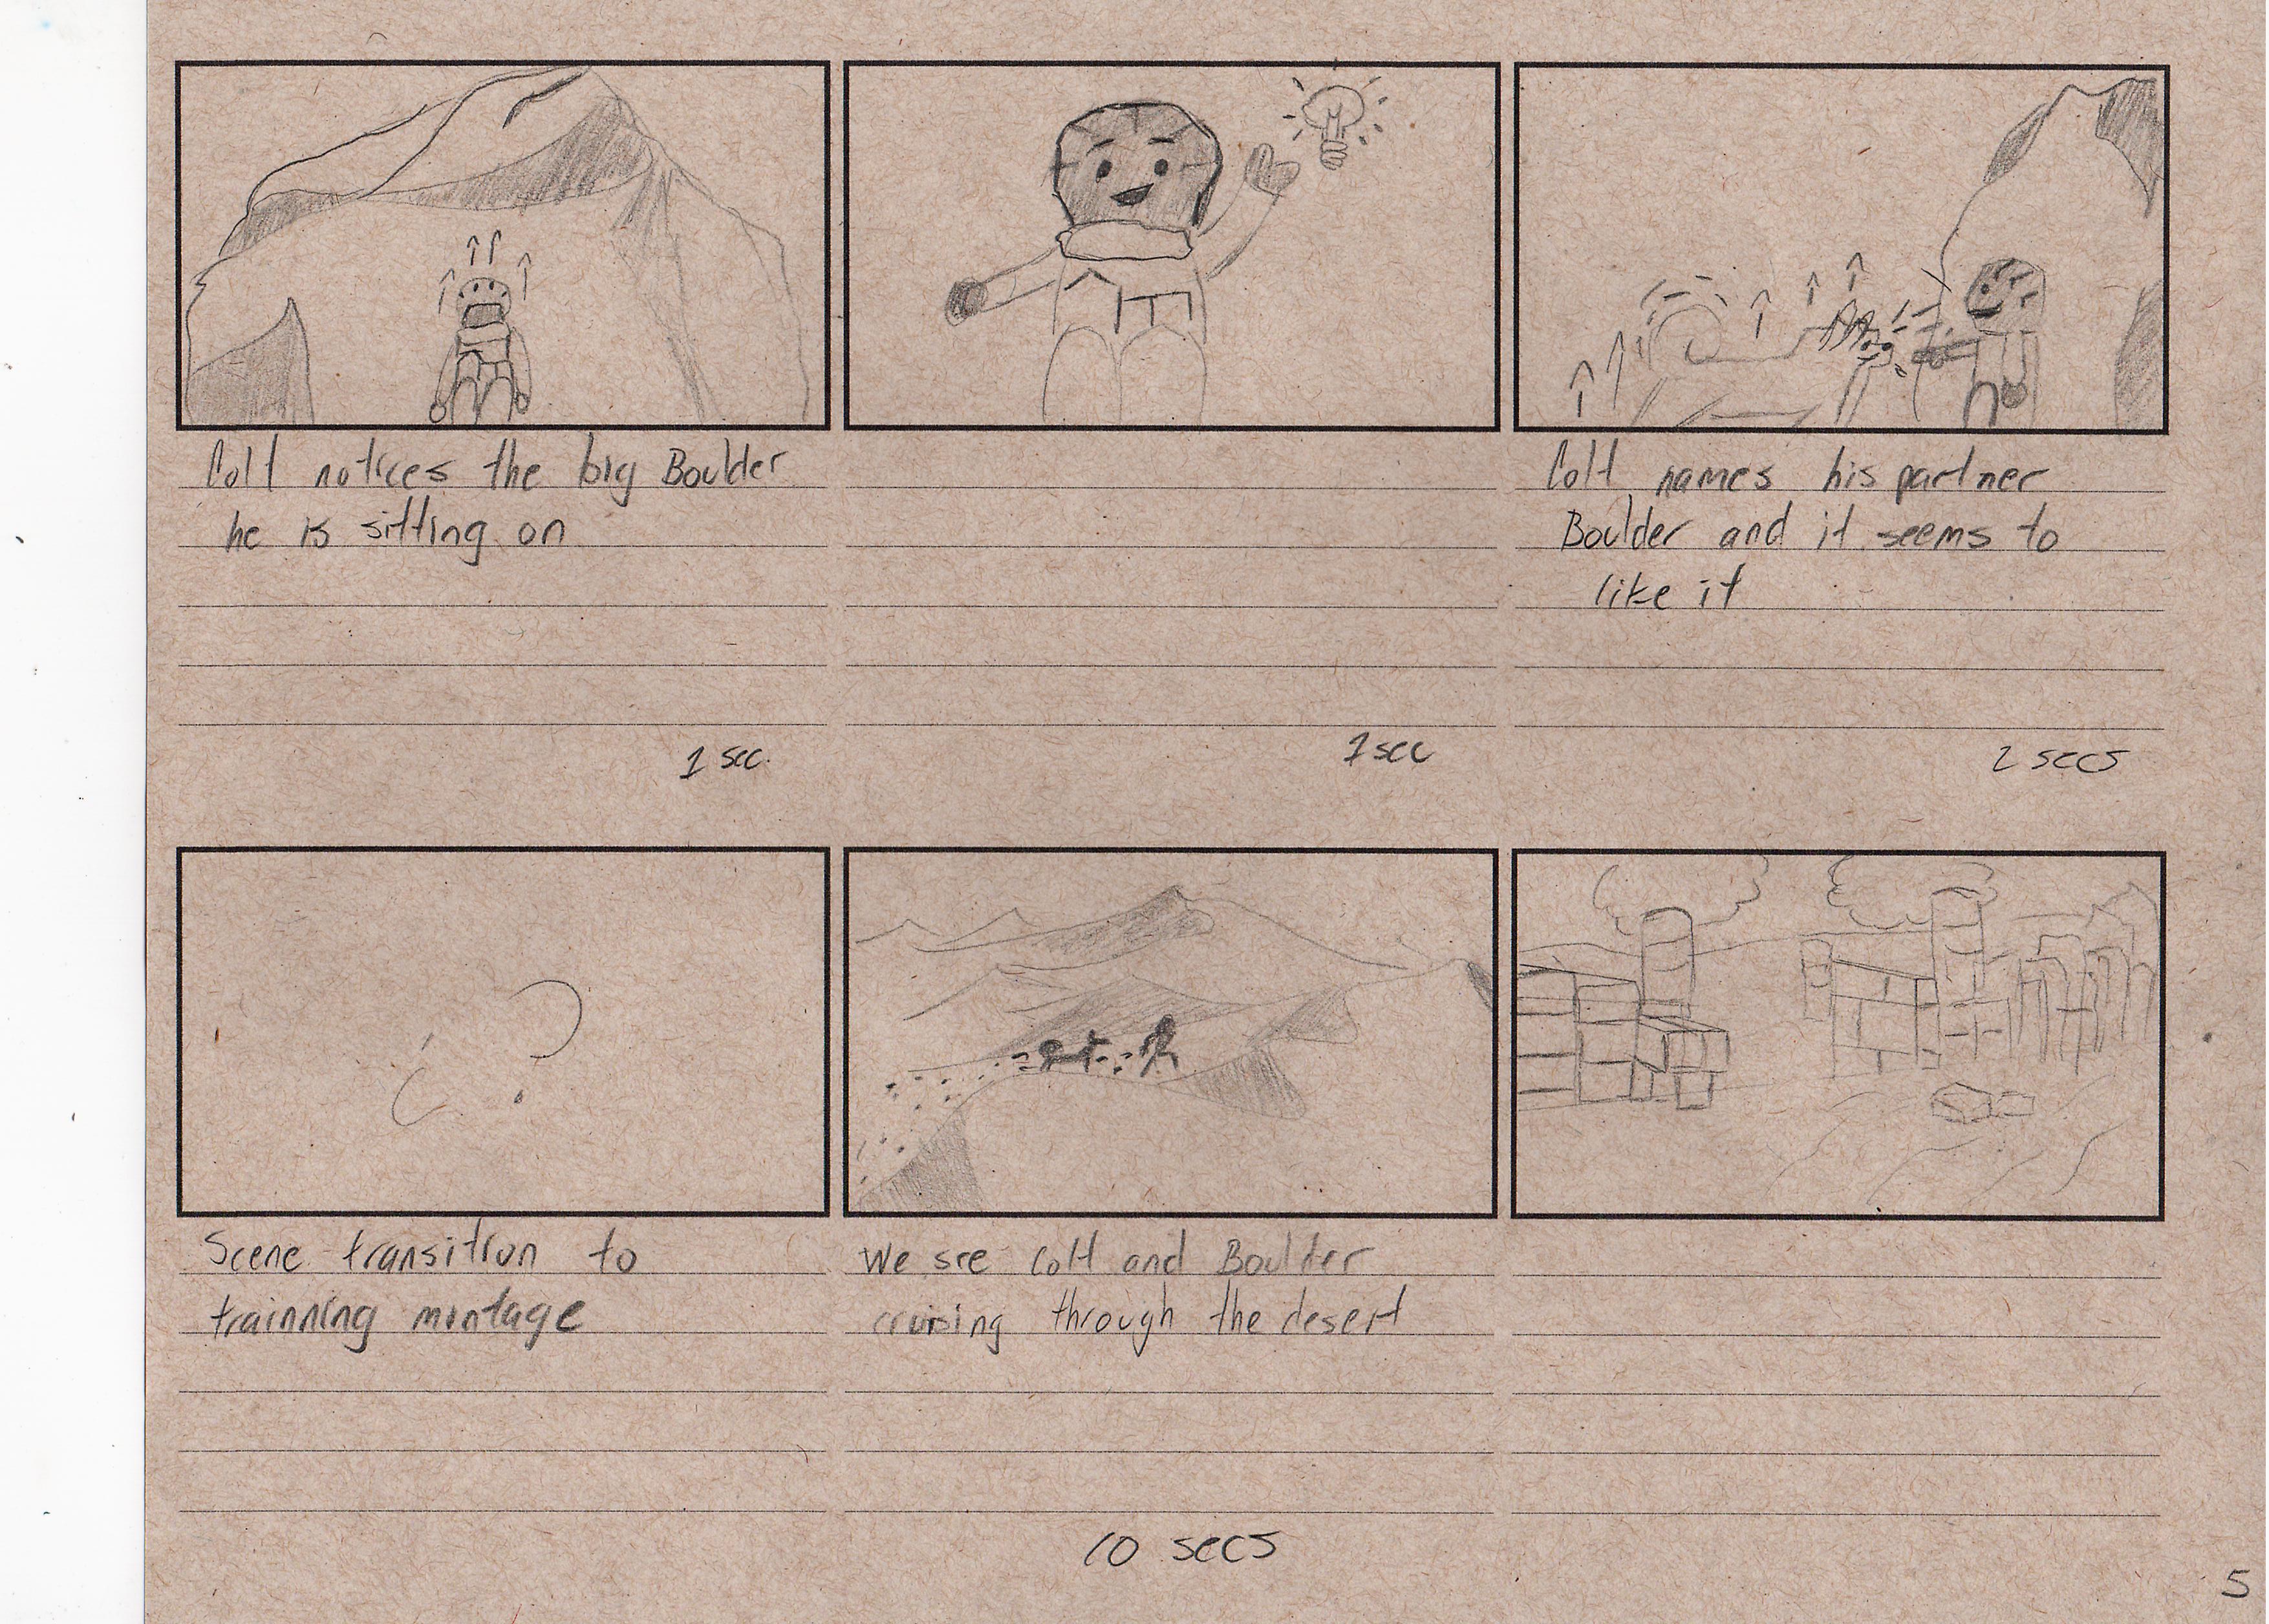 Colt notices the big Boulder
he is sitting on
1 sec.
1 sec
Colt names his partner
Boulder and it seems to
like it
2 secs
?
Scene transition to
trainning montage
We see Colt and Boulder
cruising through the desert
10 secs
5